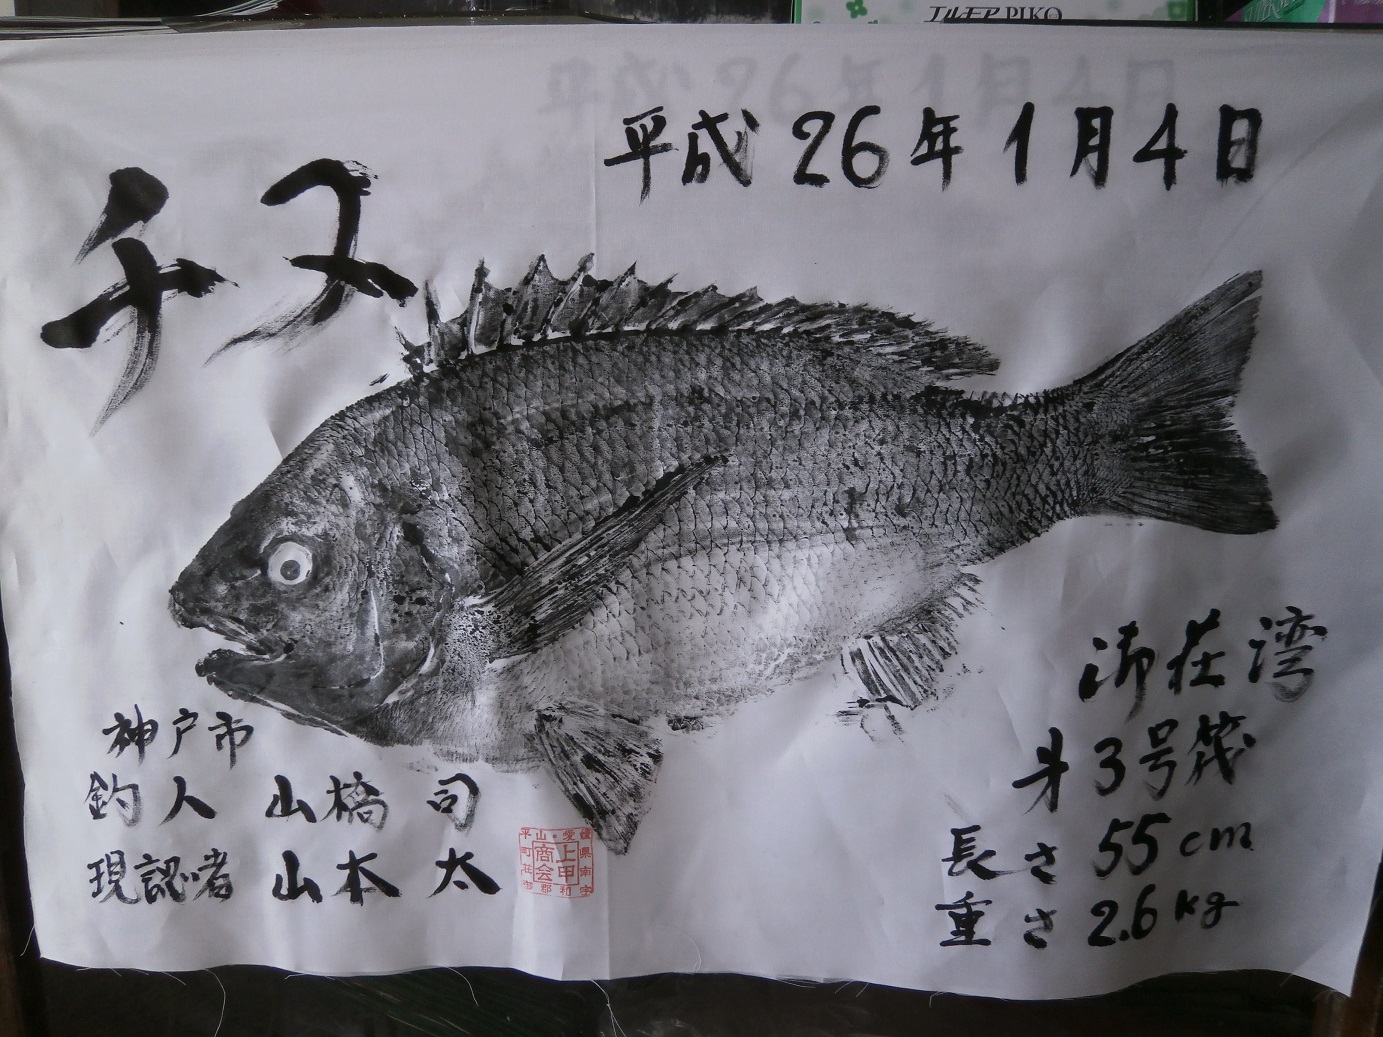 エルモア PIKO
平成26年1月4日
チヌ
御荘湾
3号筏
長さ 55cm
重さ 2.6kg
神戸市
釣人 山橋 司
現認者 山本 太
上甲
商会